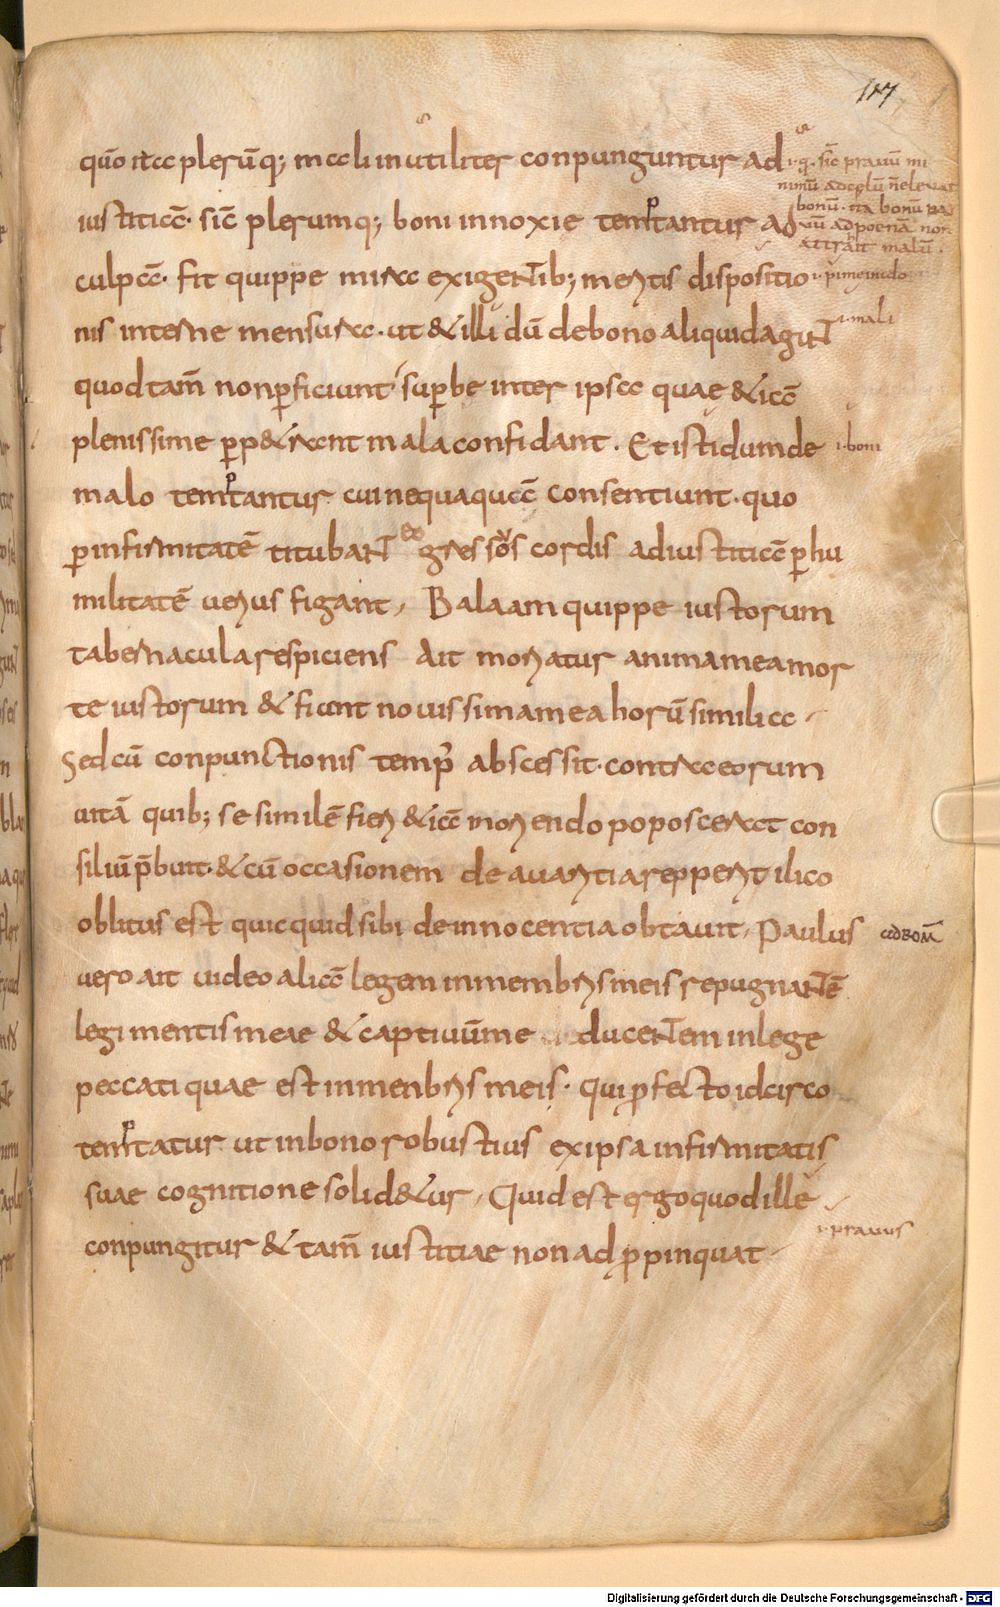 117
quō ita plerūq; mali inutiliter conpunguntur ad
iustitiā. sic̄ plerumq; boni innoxie temptantur ad
culpā. fit quippe mira exigentib; mentis dispositio
nis interne mensura. ut & illi dū de bono aliquid agunt
quod tam̄ non ꝑficiunt suꝑbe inter ipsa quae & iā
plenissime ꝑp&rant mala confidant. Et isti dum de
malo temptantur cui nequaquā consentiunt. quo
ꝑ infirmitatē titubant eo gres sōs cordis ad iustitiā ꝑ hu
militatē uerius figant, Balaam quippe iustorum
tabernacula respiciens Ait moriatur anima mea mor
te iustorum & fiant nouissima mea horū similia
Sed cū conpunctionis temp̄ abscessit. contra eorum
uitā quib; se similē fieri & iā moriendo poposcerat con
siliū p̄buit. & cū occasionem de auaritia repperit ilico
oblitus est quicquid sibi de innocentia obtauit, Paulus
uero ait uideo aliā legem in membris meis repugnantē
legi mentis meae & captiuūme ducentem in lege
peccati quae est in menbris meis. Qui ꝓfecto idcirco
temptatur ut in bono robustius ex ipsa infirmitatis
suae cognitione solid&ur, Quid est ergo quod ille
conpungitur & tam̄ iustitiae non adꝓpinquat
.i. q. sic̄ prauū mi
nimū ad celū n̄ eleuat
bonū. ita bonū pra
uū ad poenā non
attrahit malū.
.i. mali
.i. boni
ad rom̄
.i. prauus
Digitalisierung gefördert durch die Deutsche Forschungsgemeinschaft - DFG